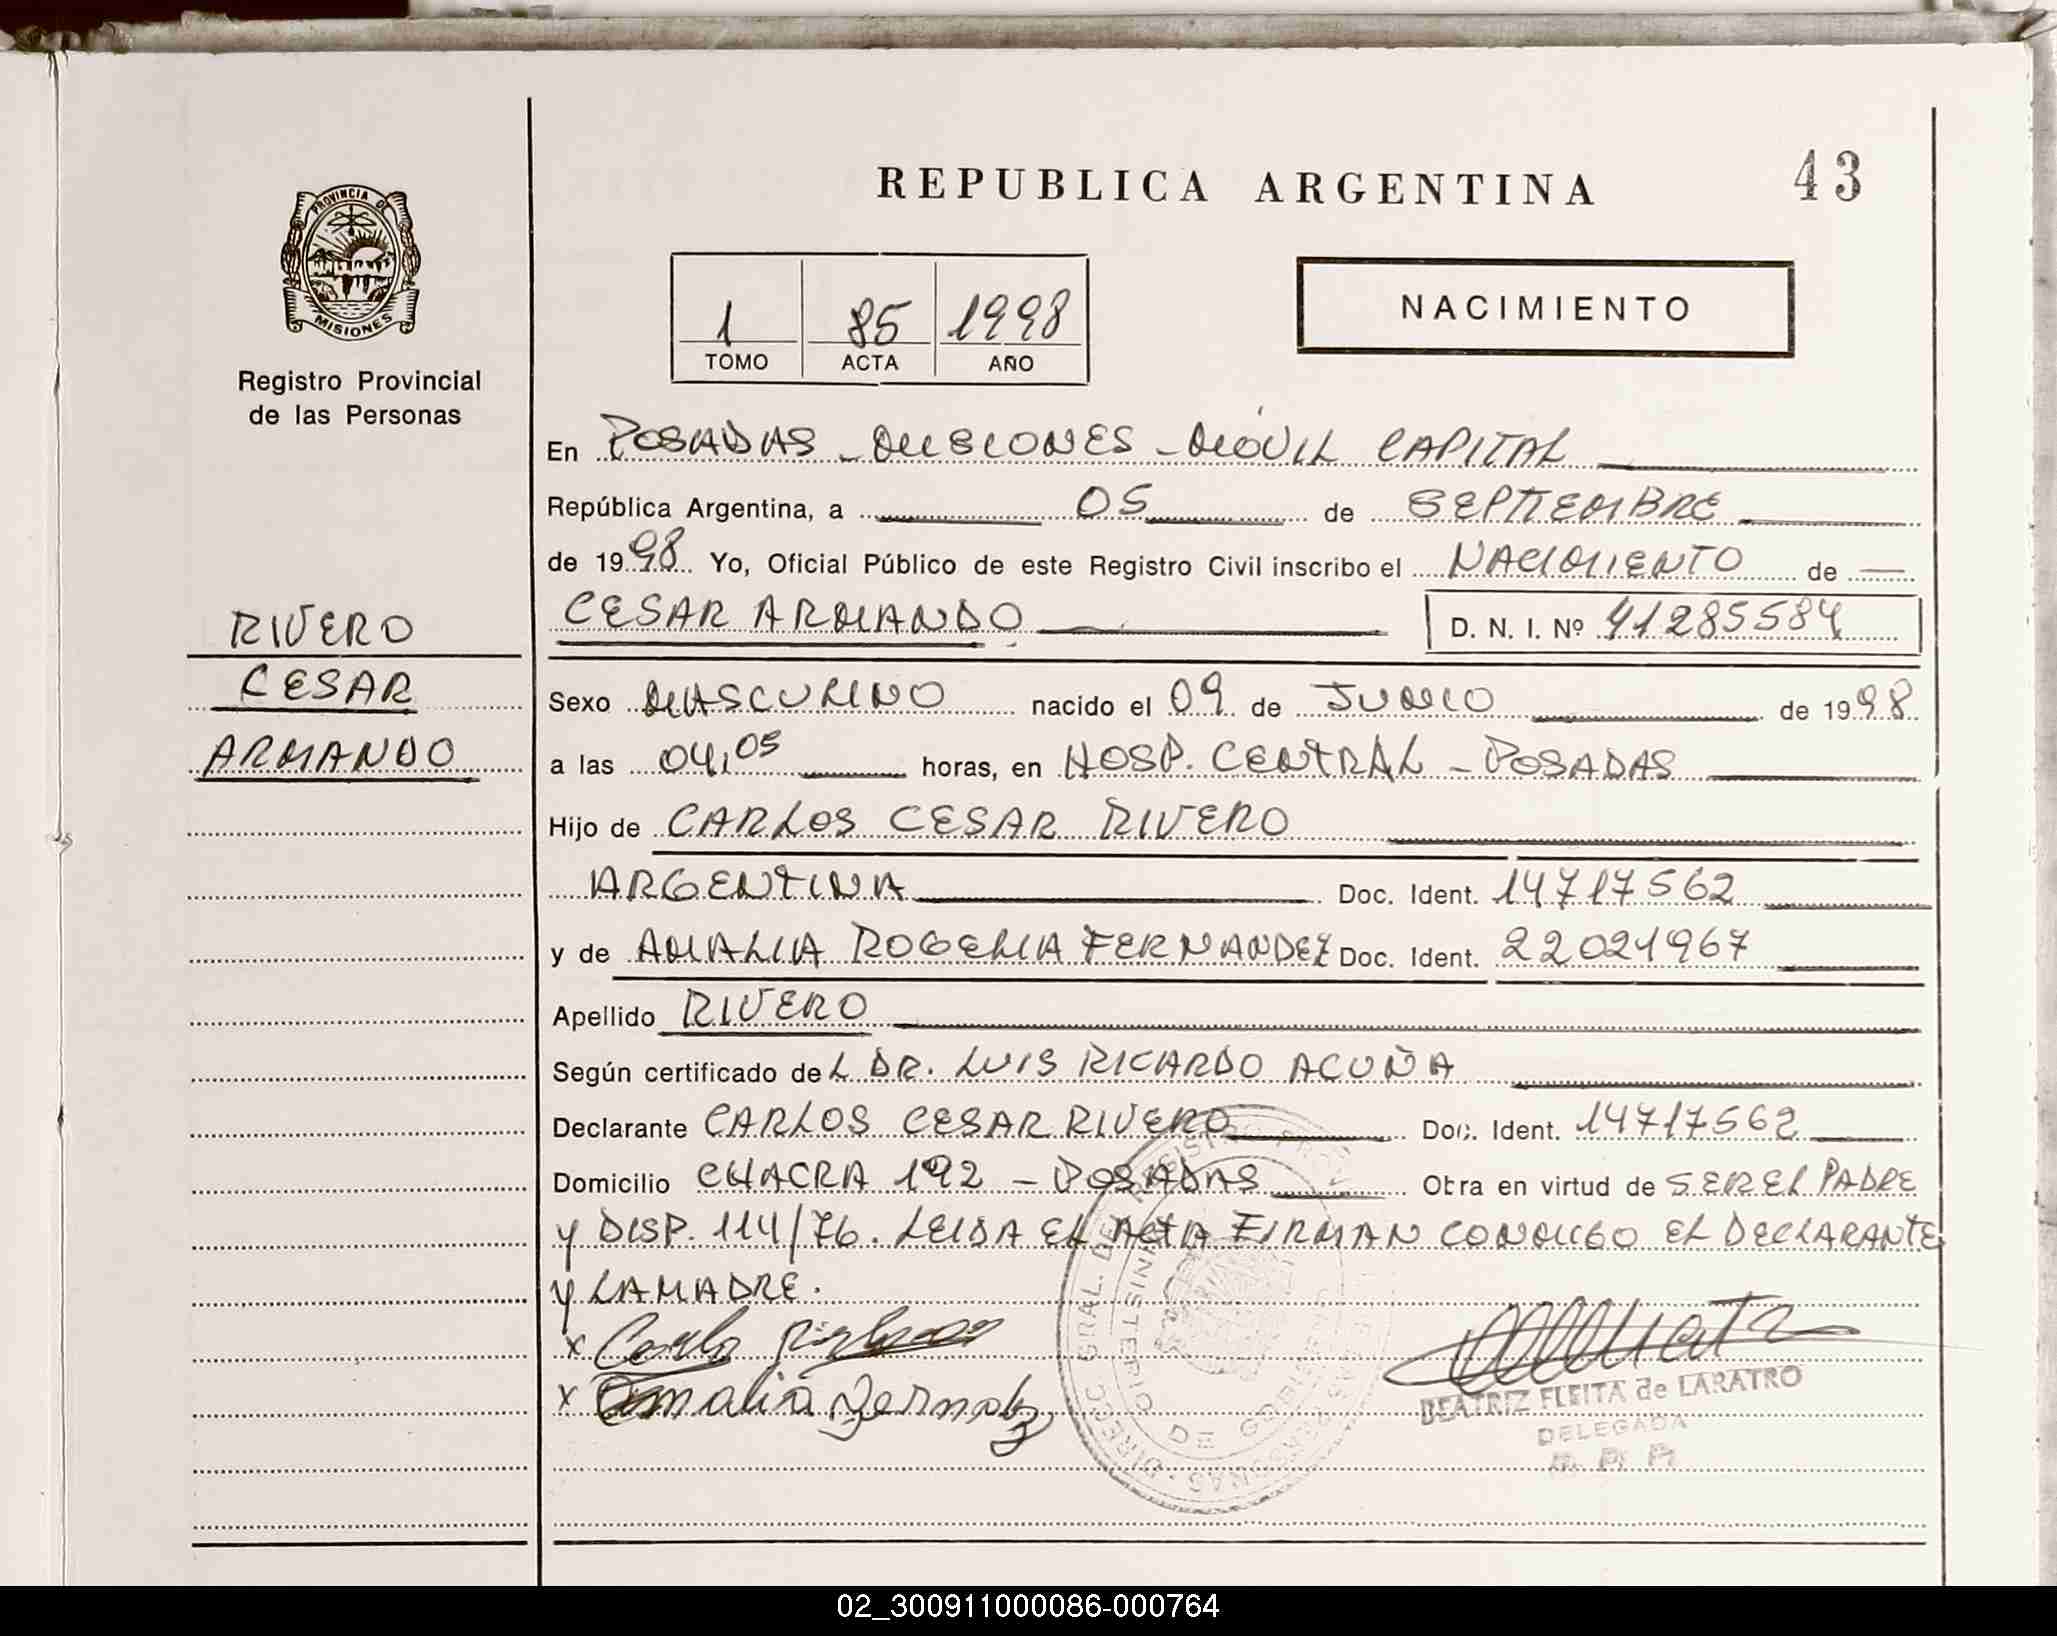 REPUBLICA ARGENTINA
43
PROVINCIA DE
MISIONES
Registro Provincial
de las Personas
1 85 1998
TOMO ACTA AÑO
NACIMIENTO
En POSADAS - MISIONES - MÓVIL CAPITAL
República Argentina, a 05 de SEPTIEMBRE
de 1998 Yo, Oficial Público de este Registro Civil inscribo el NACIMIENTO de
CESAR ARMANDO D. N. I. Nº 41285584
RIVERO
CESAR
ARMANDO
Sexo MASCULINO nacido el 09 de JUNIO de 1998
a las 04,05 horas, en HOSP. CENTRAL - POSADAS
Hijo de CARLOS CESAR RIVERO
ARGENTINA Doc. Ident. 14717562
y de AMALIA ROGELIA FERNANDEZ Doc. Ident. 22021967
Apellido RIVERO
Según certificado del DR. LUIS RICARDO ACUÑA
Declarante CARLOS CESAR RIVERO Doc. Ident. 14717562
Domicilio CHACRA 192 - POSADAS Obra en virtud de SER EL PADRE
y DISP. 114/76. LEIDA EL ACTA FIRMAN CONMIGO EL DECLARANTE
y LA MADRE.
x Carlos
x Amalia Fernandez
BEATRIZ FLEITA de LARATRO
DELEGADA
R. P. P.
MINISTERIO DE GOBIERNO
02_300911000086-000764